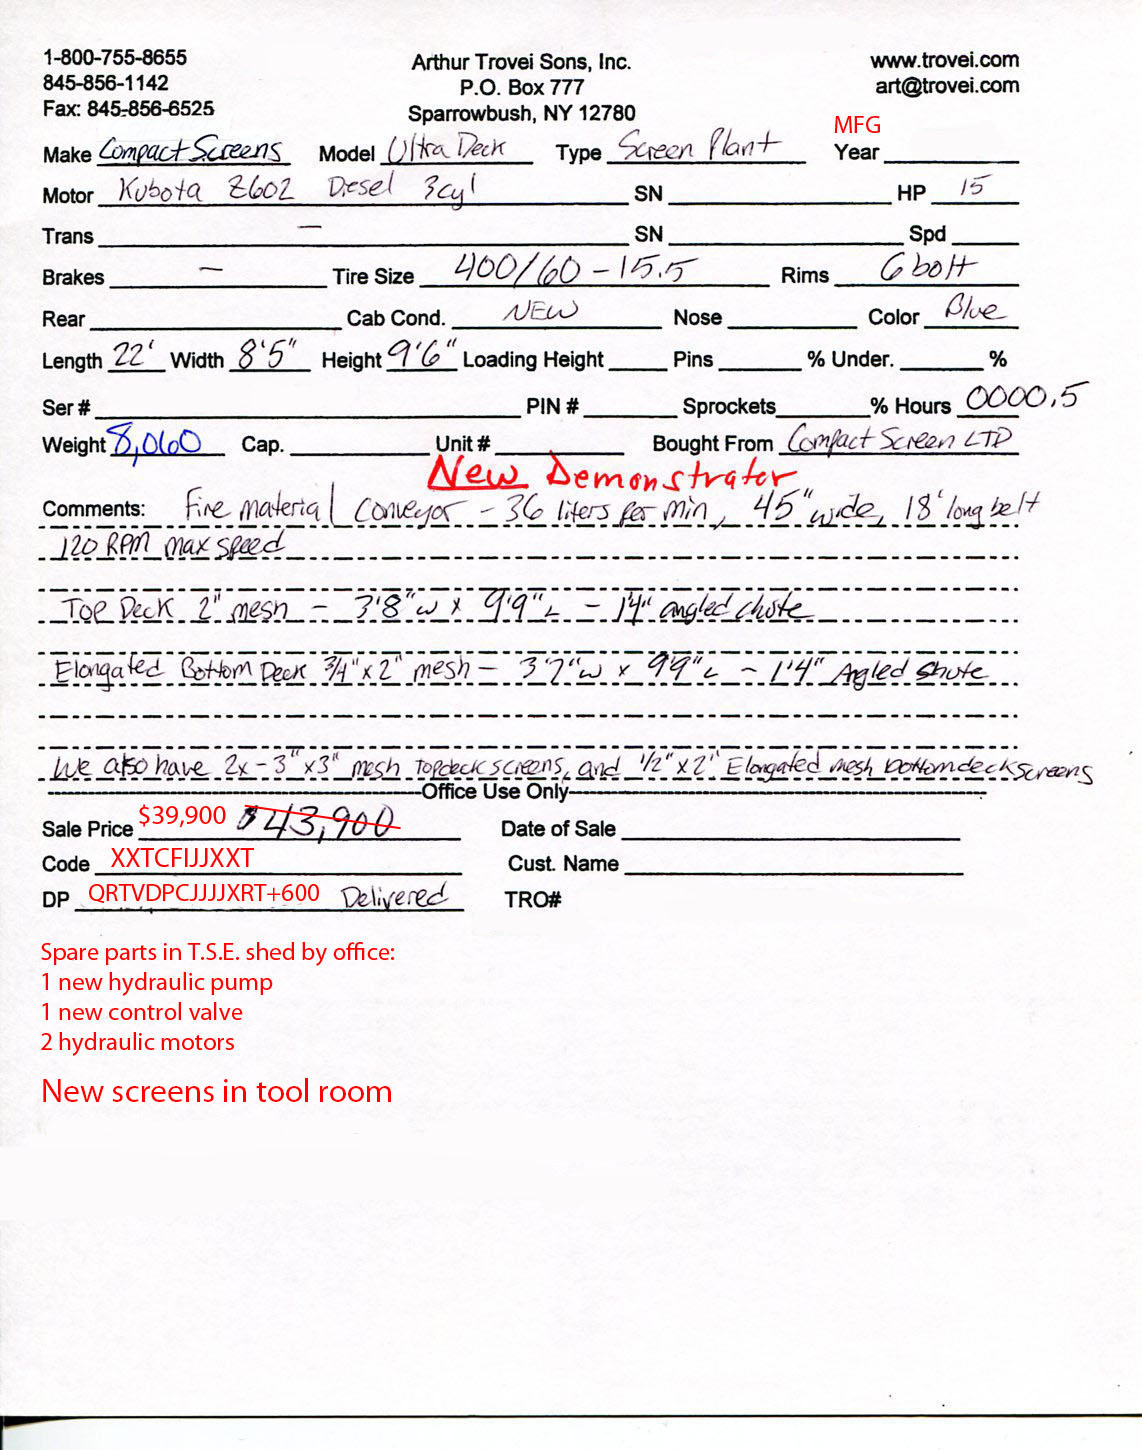 1-800-755-8655 Arthur Trovei Sons, Inc. www.trovei.com
845-856-1142 P.O. Box 777 art@trovei.com
Fax: 845-856-6525 Sparrowbush, NY 12780
MFG
Make Compact Screens Model Ultra Deck Type Screen Plant Year
Motor Kubota Z602 Diesel 3cyl SN HP 15
Trans — SN Spd
Brakes — Tire Size 400/60-15.5 Rims 6 bolt
Rear Cab Cond. NEW Nose Color Blue
Length 22' Width 8'5" Height 9'6" Loading Height Pins % Under. %
Ser # PIN # Sprockets % Hours 0000.5
Weight 8,060 Cap. Unit # Bought From Compact Screen LTD
New Demonstrator
Comments: Fine material Conveyor - 36 liters per min, 45" wide, 18' long belt
120 RPM max speed
Top Deck 2" mesh - 3'8"w x 9'9"L - 1'4" angled chute
Elongated Bottom Deck 3/4" x 2" mesh - 3'7"w x 9'9"L - 1'4" Angled Shute
We also have 2x - 3" x 3" mesh Topdeck screens, and 1/2" x 2" Elongated mesh bottomdeck screens
Office Use Only
Sale Price $39,900 $43,900 Date of Sale
Code XXTCFIJJXXT Cust. Name
DP QRTVDPCJJJJXRT+600 Delivered TRO#
Spare parts in T.S.E. shed by office:
1 new hydraulic pump
1 new control valve
2 hydraulic motors
New screens in tool room